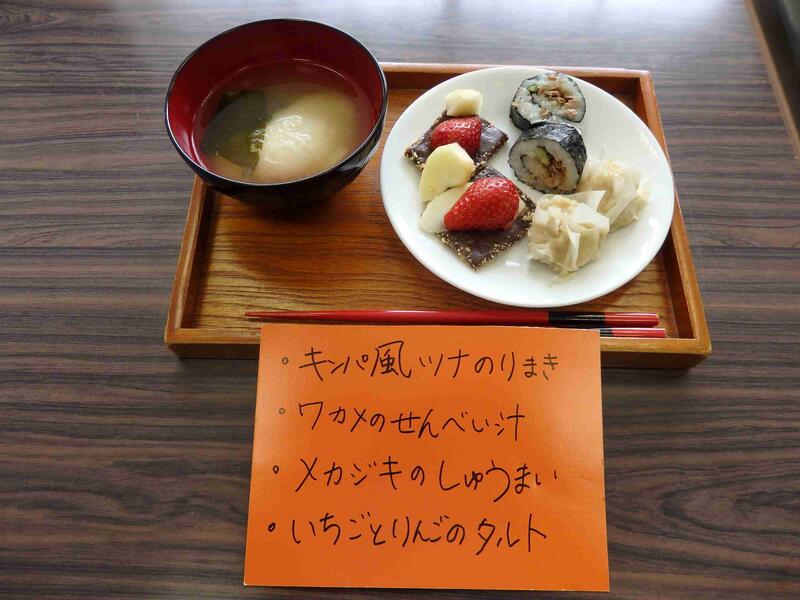 ・キンパ風ツナのりまき
・ワカメのせんべい汁
・メカジキのしゅうまい
・いちごとりんごのタルト